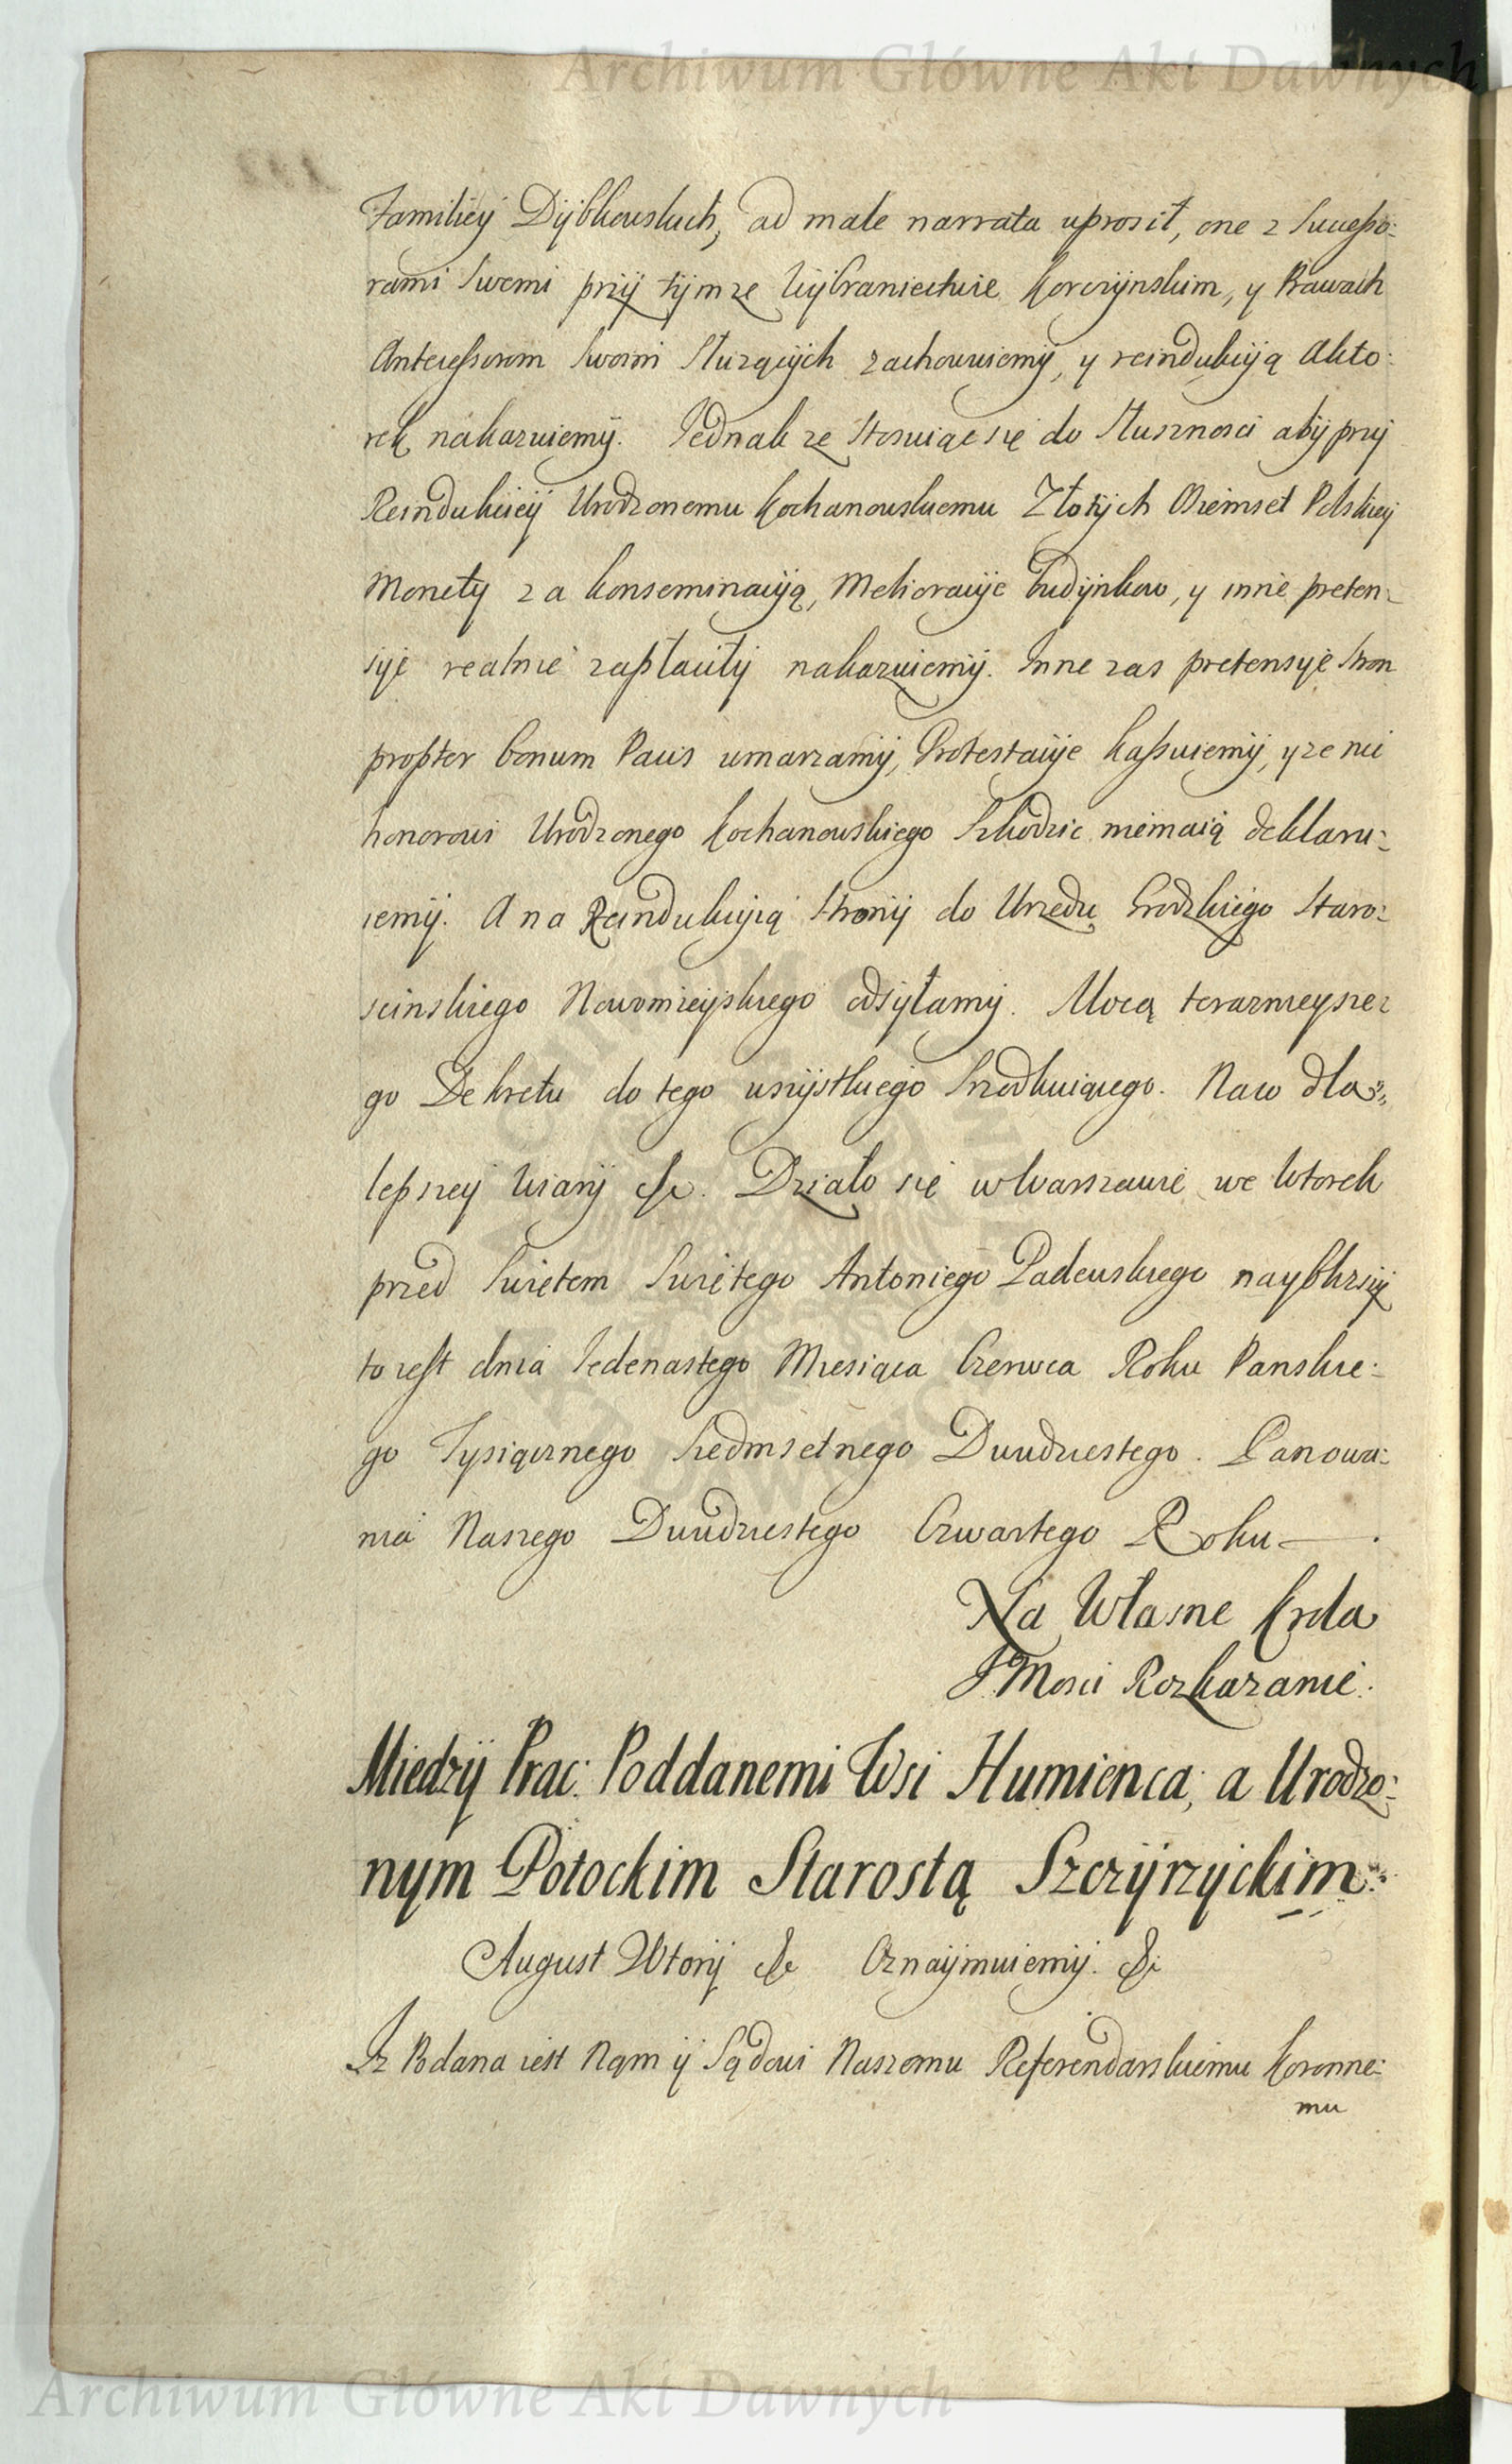 Archiwum Główne Akt Dawnych
Familiey Dybkowskich, ad male narrata uprosił, one z Sukcesso:
rami Swemi przy tymze Wybraniectwie Korczynskim, y Prawach
Antecessorom Swoim Sluzących zachowuiemy, y reindukcyą Akto:
rek nakazuiemy. Jednak ze Stosuiąc się do Słusznosci aby przy
Reindukcyey Urodzonemu Kochanowskiemu Złotych Osiemset Polskiey
Monety za konseminacyą, Melioracyje Budynkow, y inne preten:
syje realnie zapłaciły nakazuiemy. Inne zas pretensyje Stron
propter bonum Pacis umarzamy, Protestacyje kassuiemy, y ze nic
honorowi Urodzonego Kochanowskiego Szkodzic niemaią deklaru:
iemy. A na Reindukcyią Strony do Urzędu Grodzkiego Staro:
scinskiego Nowomieyskiego odsyłamy. Mocą teraznieysze:
go Dekretu do tego wszystkiego Srzodkuiącego. Na co dla
lepszey Wiary &c. Działo się w Warszawie we Wtorek
przed Swiętem Swiętego Antoniego Padewskiego nayblizszy
to iest dnia Jedenastego Miesiąca Czerwca Roku Panskie:
go Tysiącznego Siedmsetnego Dwudziestego. Panowa:
nia Naszego Dwudziestego Czwartego Roku.
Na Własne Krola
JMosci Rozkazanie.
Miedzy Prac: Poddanemi Wsi Humienca, a Urodzo:
nym Potockim Starostą Szczyrzyckim:
August Wtory &c Oznaymuiemy. &c
Iz Podana iest Nam y Sądowi Naszemu Referendarskiemu Koronne:
mu
Archiwum Główne Akt Dawnych